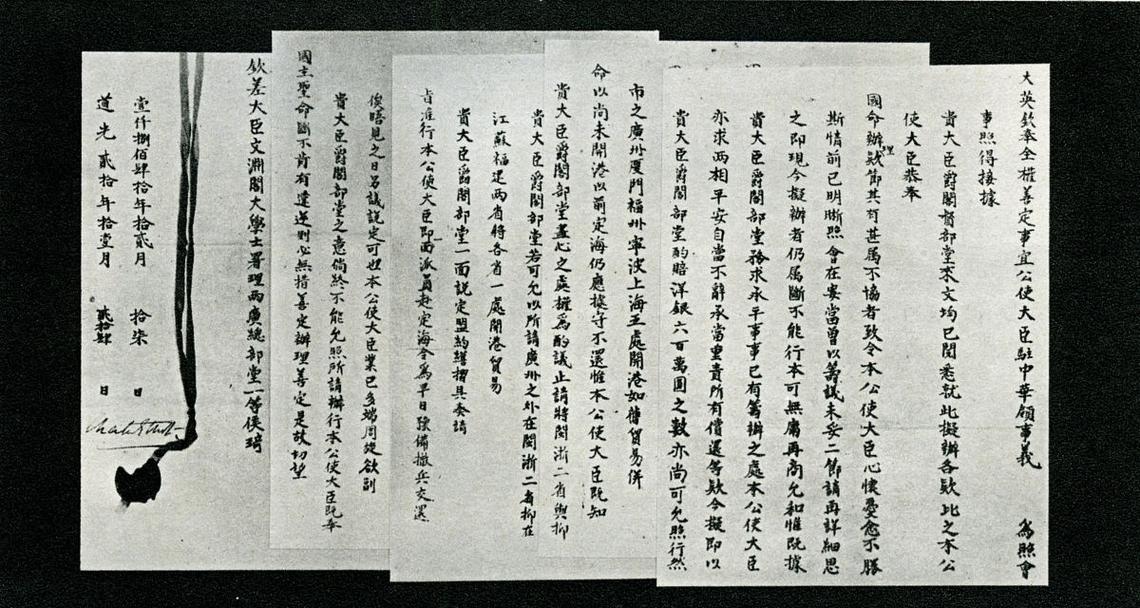 大英欽奉全權善定事宜公使大臣駐中華領事義 為照會
事照得接據
貴大臣爵閣督部堂來文均已閱悉就此擬辦各欵比之本公
使大臣恭奉
國命辦理欵節其有甚属不協者致令本公使大臣心懷憂愈不勝
斯情前已明晰照會在案當曾以籌議未妥二節請再詳細思
之即現今擬辦者仍属斷不能行本可無庸再商允和惟既據
貴大臣爵閣部堂務求承平事事已有籌辦之處本公使大臣
亦求兩相平安自當不辭承當重責所有償還等欵今擬即以
貴大臣爵閣部堂酌賠洋銀六百萬圓之數亦尚可允照行然
市之廣州厦門福州寧波上海五處開港如舊貿易併
命以尚未開港以前定海仍應據守不還惟本公使大臣既知
貴大臣爵閣部堂盡心之處權為酌議止請將閩浙二省與抑
貴大臣爵閣部堂若可允以所請廣州之外在閩浙二省抑在
江蘇福建兩省將各省一處開港貿易
貴大臣爵閣部堂一面說定盟約繕摺具奏請
旨准行本公使大臣即一面派員赴定海令為早日預備撤兵交還
俟晤見之日另議說定可也本公使大臣業已多端周旋欲副
貴大臣爵閣部堂之意倘終不能允照所請辦行本公使大臣既奉
國主聖命斷不肯有違逆則必無措善定辦理善定是故切望
欽差大臣文淵閣大學士署理兩廣總部堂一等侯琦
壹仟捌佰肆拾年拾貳月 拾柒 日
道光貳拾年拾壹月 貳拾肆 日